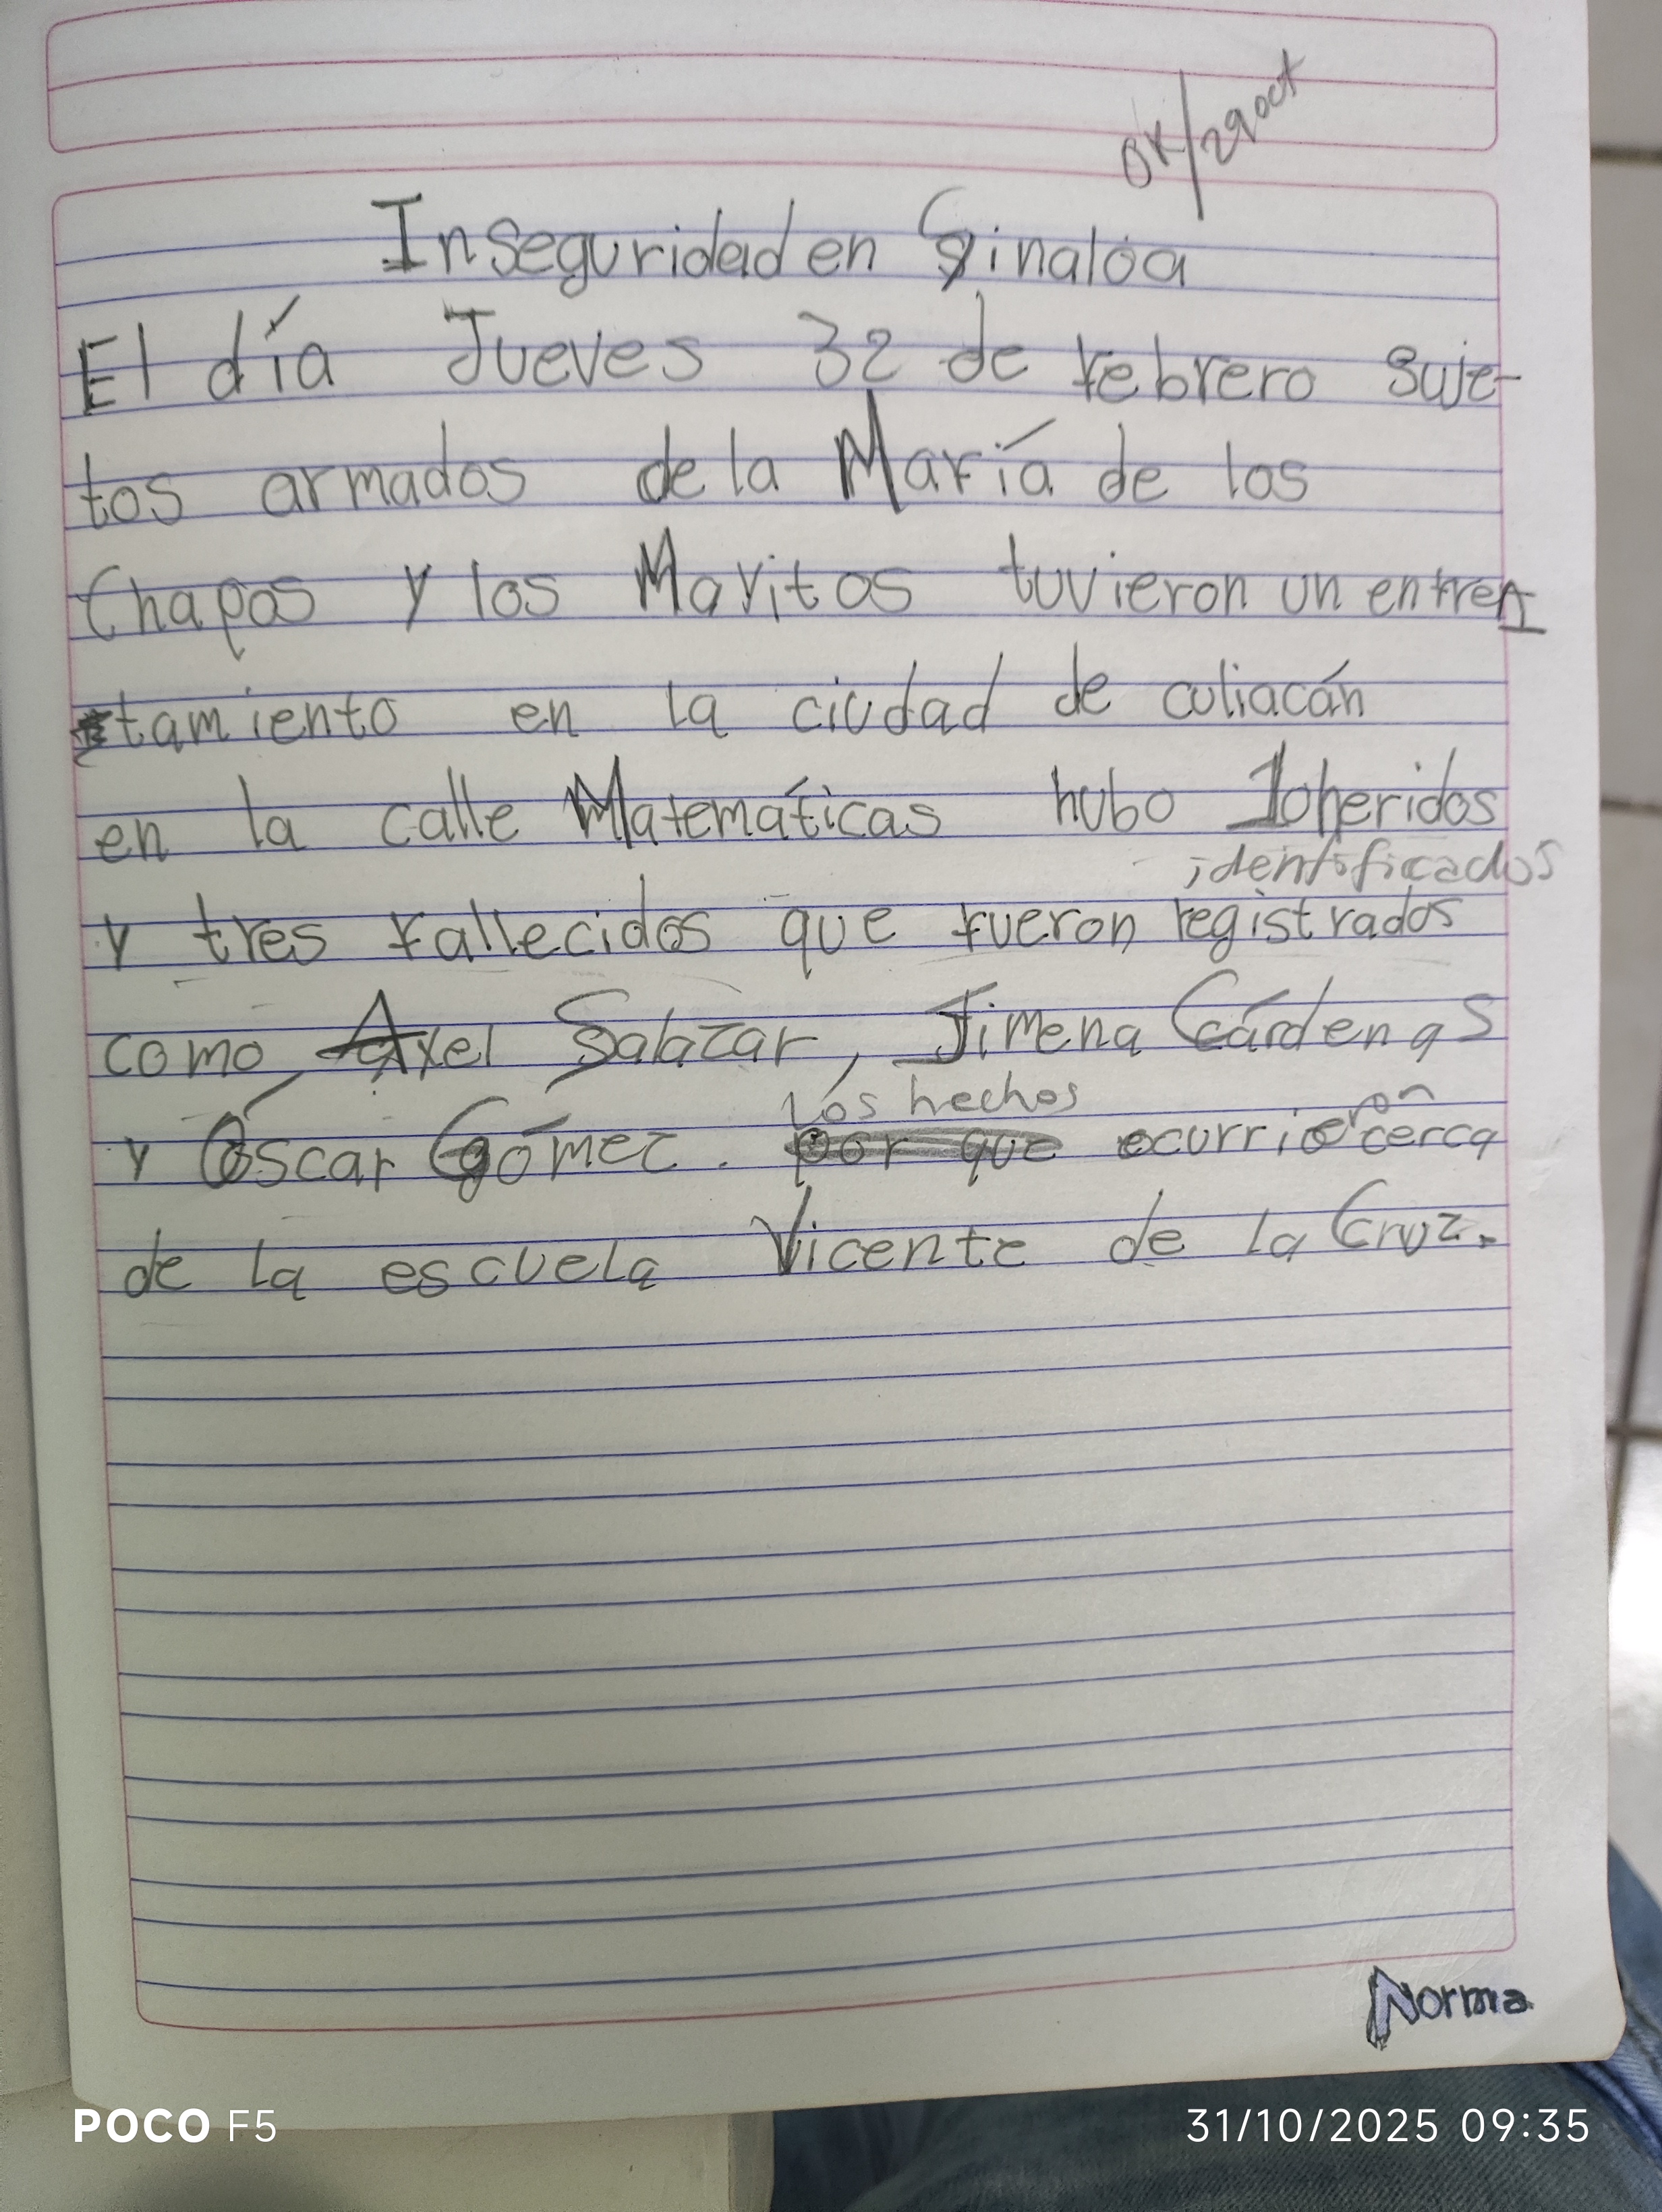 OK/29 oct
Inseguridad en Sinaloa
El día Jueves 32 de febrero suje-
tos armados de la María de los
Chapos y los Mayitos tuvieron un enfren
tamiento en la ciudad de culiacán
en la calle Matemáticas hubo 10 heridos
identificados
y tres fallecidos que fueron registrados
como Axel Salazar, Jimena Cárdenas
los hechos
y Óscar Gómez. por que ocurrieron cerca
de la escuela Vicente de la Cruz.
Norma
POCO F5
31/10/2025 09:35